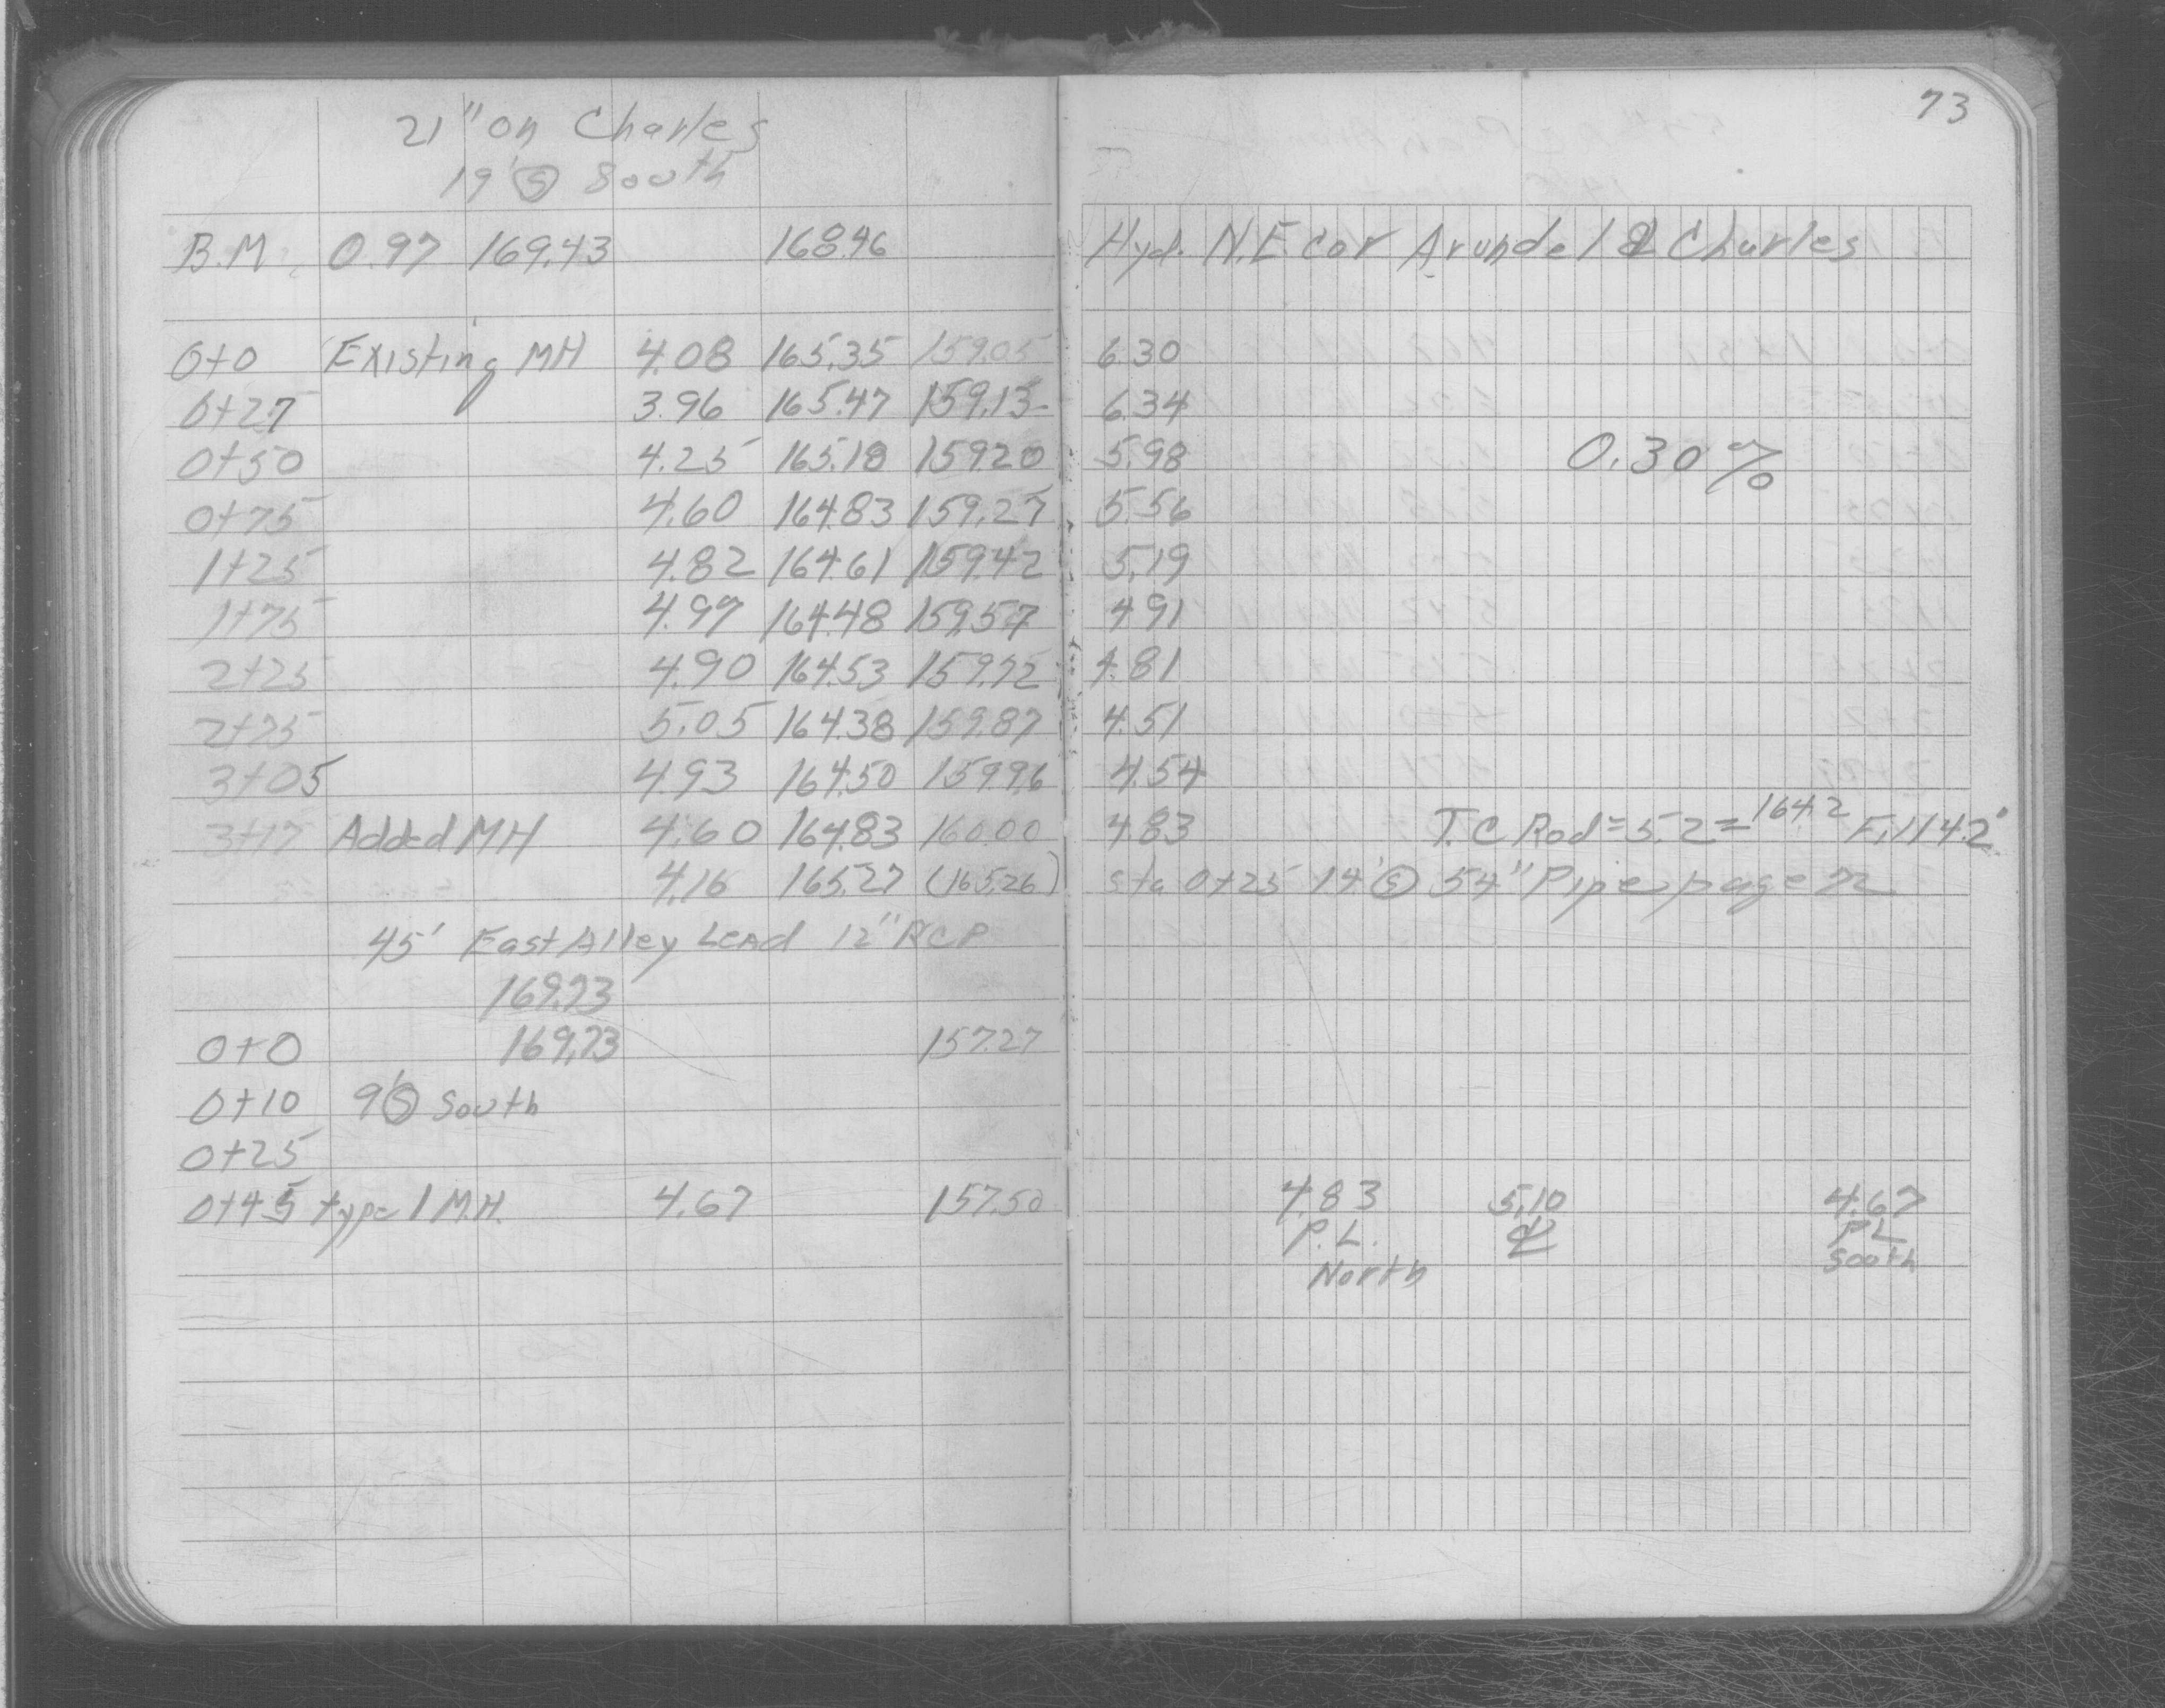 73
21" on Charles
19' Ⓢ South
B.M. 0.97 169.43 168.46 Hyd. N.E. cor Arundel & Charles
0+0 Existing MH 4.08 165.35 159.05 6.30
0+27 3.96 165.47 159.13 6.34
0+50 4.25 165.18 159.20 5.98 0.30%
0+75 4.60 164.83 159.27 5.56
1+25 4.82 164.61 159.42 5.19
1+75 4.97 164.48 159.57 4.91
2+25 4.90 164.53 159.72 4.81
2+75 5.05 164.38 159.87 4.51
3+05 4.93 164.50 159.96 4.54
3+17 Added MH 4.60 164.83 160.00 4.83 T.C Rod = 5.2 = 164.2 Fill 4.2'
4.16 165.27 (165.26) sta 0+25 14' Ⓢ 54" Pipe page 72
45' East Alley Lead 12" RCP
169.73
0+0 169.73 157.27
0+10 9' Ⓢ South
0+25
0+45 type 1 M.H. 4.67 157.50 4.83 5.10 4.67
P.L. ℄ PL
North South